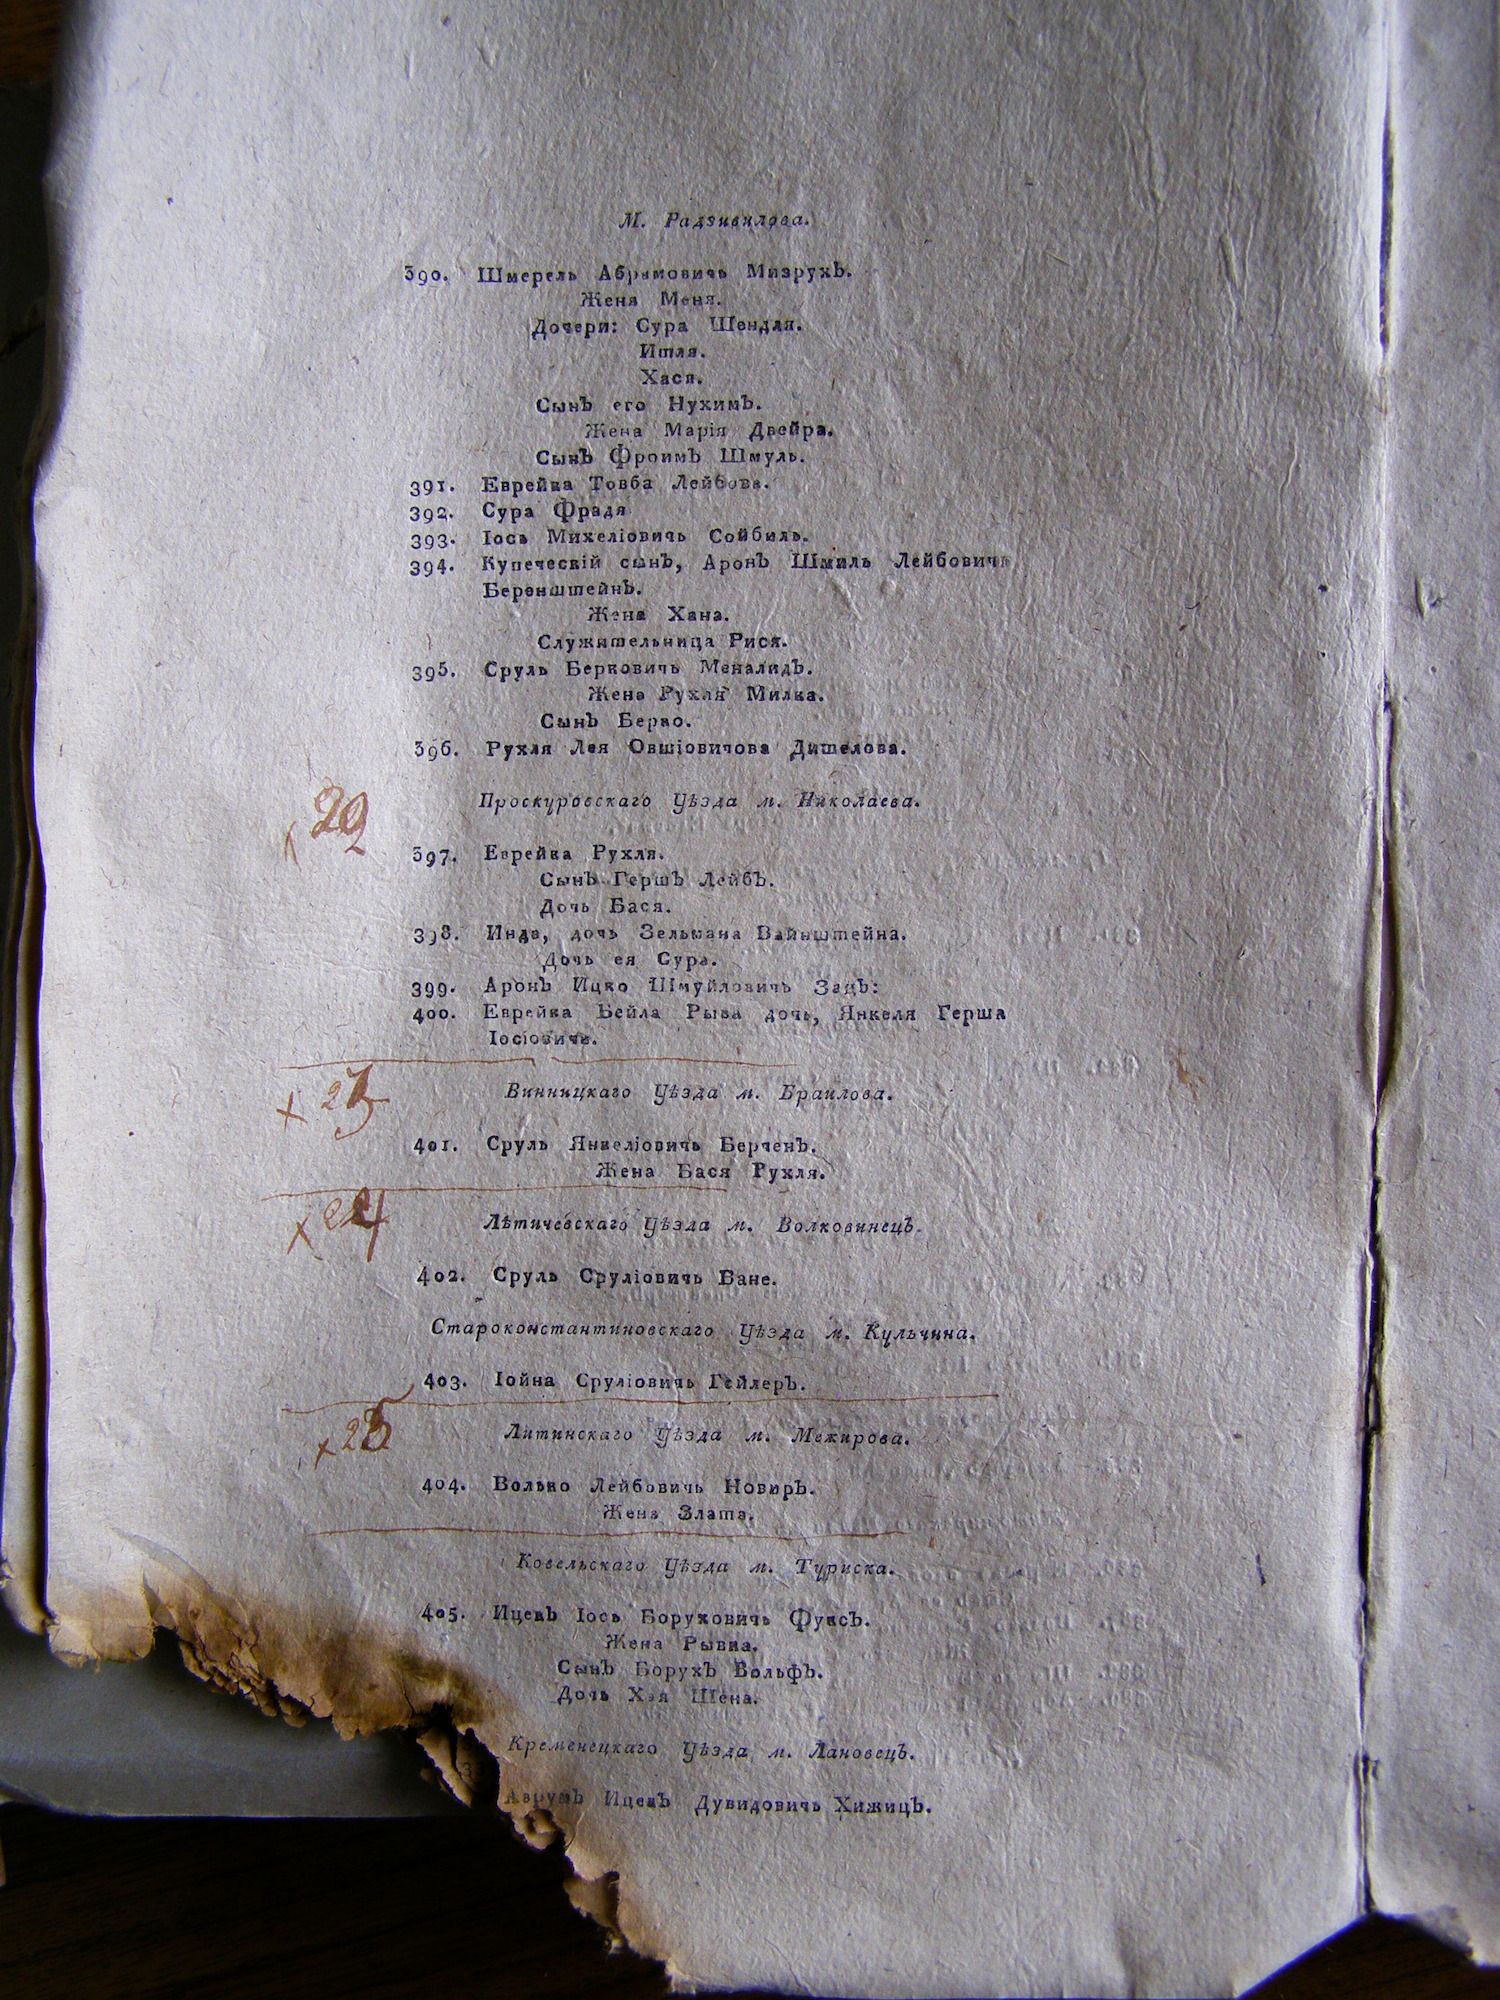 М. Радзивилова.
390. Шмерель Абрамовичь Мизрухъ.
Жена Меня.
Дочери: Сура Шендля.
Итля.
Хася.
Сынъ его Нухимъ.
Жена Марія Двейра.
Сынъ Фроимъ Шмуль.
391. Еврейка Товба Лейбова.
392. Сура Фрадя
393. Іось Михеліовичь Сойбиль.
394. Купеческій сынъ, Аронъ Шмиль Лейбовичь
Беренштейнъ.
Жена Хана.
Служительница Рися.
395. Сруль Берковичь Меналидъ.
Жена Рухля Милка.
Сынъ Берко.
396. Рухля Лея Овшіовичова Дителова.
Проскуровскаго Уѣзда м. Николаева.
397. Еврейка Рухля.
Сынъ Гершъ Лейбъ.
Дочь Бася.
398. Инда, дочь Зельмана Вайнштейна.
Дочь ея Сура.
399. Аронъ Ицко Шмуйловичь Зацъ:
400. Еврейка Бейла Рыва дочь, Янкеля Герша
Іосіовича.
Винницкаго Уѣзда м. Браилова.
401. Сруль Янкеліовичь Берченъ.
Жена Бася Рухля.
× 24
Лѣтичевскаго Уѣзда м. Волковинецъ.
402. Сруль Сруліовичь Ване.
Староконстантиновскаго Уѣзда м. Кульчина.
403. Іойна Сруліовичь Гейлеръ.
× 25
Литинскаго Уѣзда м. Межирова.
404. Волько Лейбовичь Новиръ.
Жена Злата.
Ковельскаго Уѣзда м. Туриска.
405. Ицекъ Іось Боруховичь Фуксъ.
Жена Рывка.
Сынъ Борухъ Вольфъ.
Дочь Хая Шена.
Кременецкаго Уѣзда м. Лановецъ.
Аврумъ Ицекъ Дувидовичь Хижицъ.